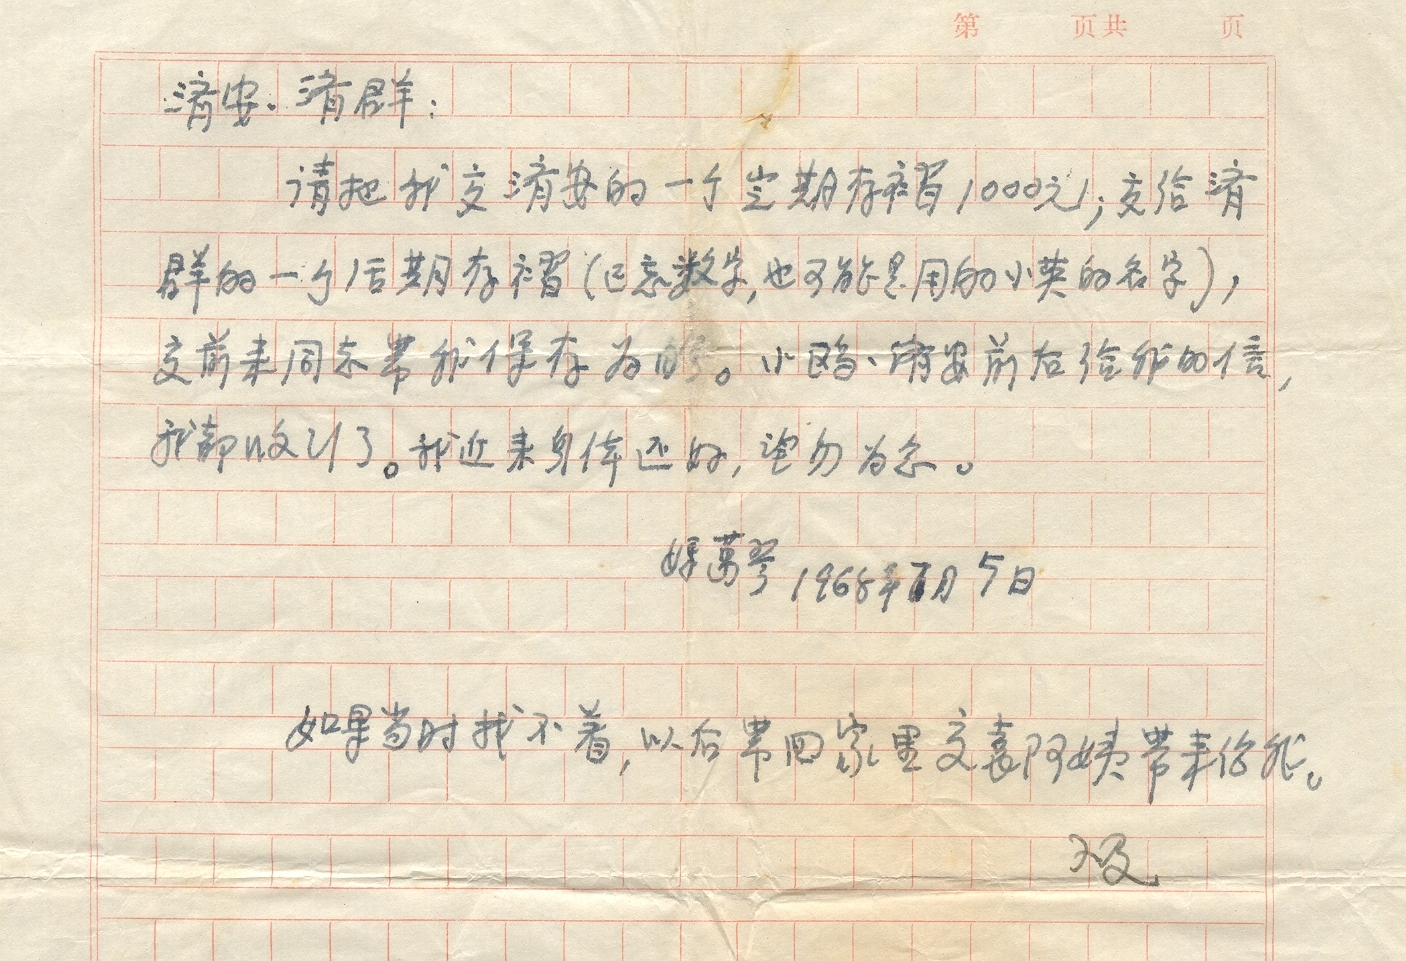 第 页共 页
济安、济群：
请把我交济安的一个定期存褶1000元；交给济
群的一个活期存褶(已忘数字,也可能是用的小英的名字),
交前来同志带我保存为盼。小鸥、济安前后给我的信,
我都收到了。我近来身体还好,望勿为念。
妈万琴 1968年 月5日
如果当时找不着,以后带回家里交袁阿姨带来给我。
又及